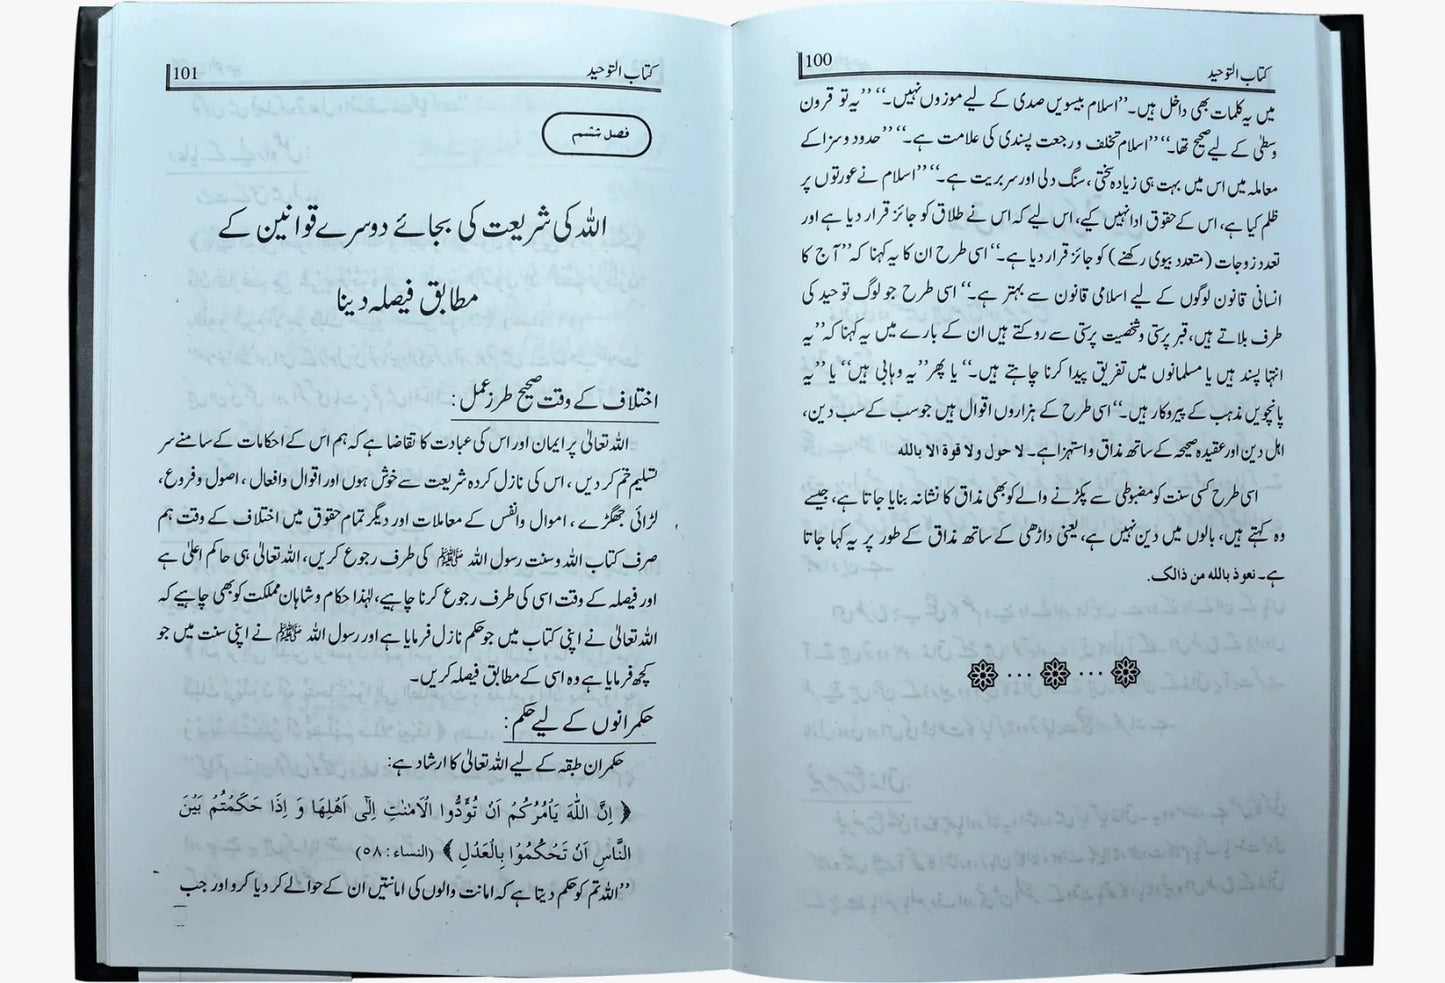 کتاب التوحید 100
میں یہ کلمات بھی داخل ہیں۔ ’’اسلام بیسویں صدی کے لیے موزوں نہیں۔‘‘ ’’یہ تو قرون
وسطیٰ کے لیے صحیح تھا۔‘‘ ’’اسلام تخلف و رجعت پسندی کی علامت ہے۔‘‘ ’’حدود و سزا کے
معاملہ میں اس میں بہت ہی زیادہ سختی، سنگ دلی اور سربریت ہے۔‘‘ ’’اسلام نے عورتوں پر
ظلم کیا ہے، اس کے حقوق ادا نہیں کیے، اس لیے کہ اس نے طلاق کو جائز قرار دیا ہے اور
تعدد زوجات (متعدد بیوی رکھنے) کو جائز قرار دیا ہے۔‘‘ اسی طرح ان کا یہ کہنا کہ ’’آج کا
انسانی قانون لوگوں کے لیے اسلامی قانون سے بہتر ہے۔‘‘ اسی طرح جو لوگ توحید کی
طرف بلاتے ہیں، قبر پرستی و شخصیت پرستی سے روکتے ہیں ان کے بارے میں یہ کہنا کہ ’’یہ
انتہا پسند ہیں یا مسلمانوں میں تفریق پیدا کرنا چاہتے ہیں۔‘‘ یا پھر ’’یہ وہابی ہیں‘‘ یا ’’یہ
پانچویں مذہب کے پیروکار ہیں۔‘‘ اسی طرح کے ہزاروں اقوال ہیں جو سب کے سب دین،
اہل دین اور عقیدہ صحیحہ کے ساتھ مذاق و استہزا ہے۔ لا حول ولا قوة الا بالله
اسی طرح کسی سنت کو مضبوطی سے پکڑنے والے کو بھی مذاق کا نشانہ بنایا جاتا ہے، جیسے
وہ کہتے ہیں، بالوں میں دین نہیں ہے، یعنی داڑھی کے ساتھ مذاق کے طور پر یہ کہا جاتا
ہے۔ نعوذ بالله من ذالک.
کتاب التوحید 101
فصل ششم
اللہ کی شریعت کی بجائے دوسرے قوانین کے
مطابق فیصلہ دینا
اختلاف کے وقت صحیح طرز عمل:
اللہ تعالیٰ پر ایمان اور اس کی عبادت کا تقاضا ہے کہ ہم اس کے احکامات کے سامنے سر
تسلیم خم کر دیں، اس کی نازل کردہ شریعت سے خوش ہوں اور اقوال وافعال، اصول و فروع،
لڑائی جھگڑے، اموال وانفس کے معاملات اور دیگر تمام حقوق میں اختلاف کے وقت ہم
صرف کتاب اللہ و سنت رسول اللہ ﷺ کی طرف رجوع کریں، اللہ تعالیٰ ہی حاکم اعلیٰ ہے
اور فیصلہ کے وقت اسی کی طرف رجوع کرنا چاہیے، لہٰذا حکام و شاہان مملکت کو بھی چاہیے کہ
اللہ تعالیٰ نے اپنی کتاب میں جو حکم نازل فرمایا ہے اور رسول اللہ ﷺ نے اپنی سنت میں جو
کچھ فرمایا ہے وہ اسی کے مطابق فیصلہ کریں۔
حکمرانوں کے لیے حکم:
حکمران طبقہ کے لیے اللہ تعالیٰ کا ارشاد ہے:
﴿ اِنَّ اللّٰهَ يَاْمُرُكُمْ اَنْ تُؤَدُّوا الْاَمٰنٰتِ اِلٰٓى اَهْلِهَا وَ اِذَا حَكَمْتُمْ بَيْنَ
النَّاسِ اَنْ تَحْكُمُوْا بِالْعَدْلِ ﴾ (النساء: ٥٨)
’’اللہ تم کو حکم دیتا ہے کہ امانت والوں کی امانتیں ان کے حوالے کر دیا کرو اور جب